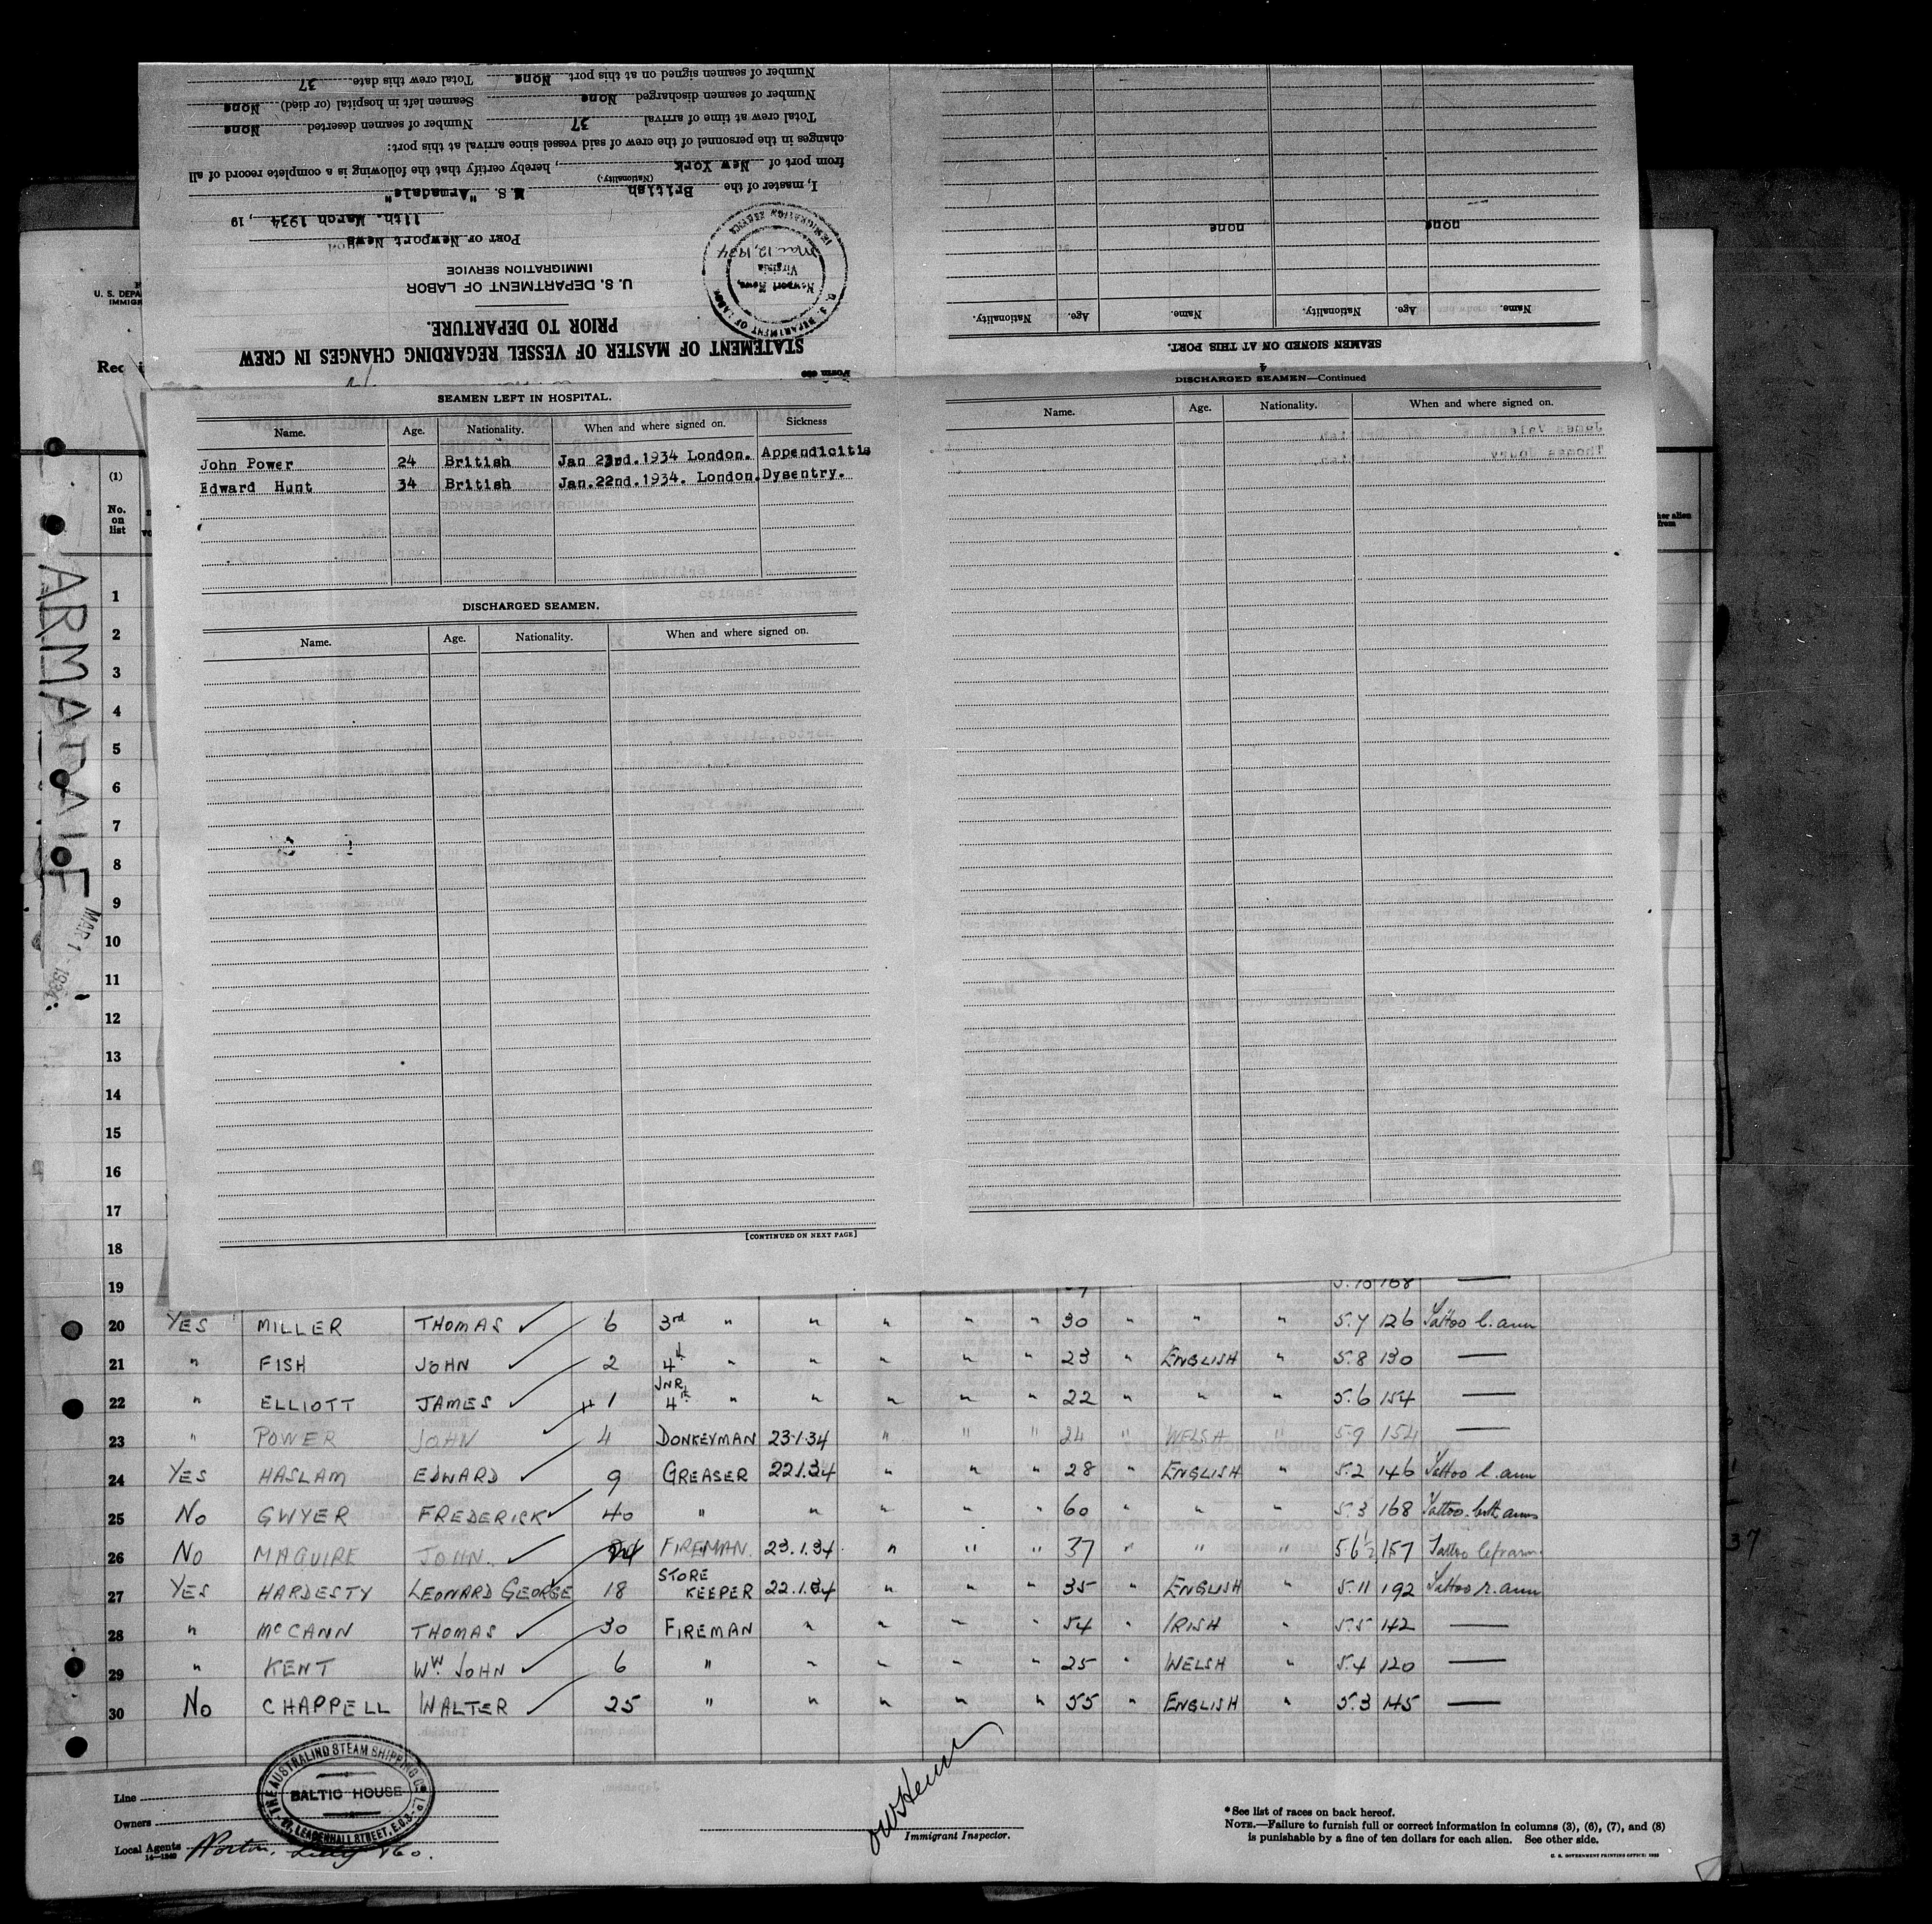 Form 689
STATEMENT OF MASTER OF VESSEL REGARDING CHANGES IN CREW
PRIOR TO DEPARTURE.
U. S. DEPARTMENT OF LABOR
IMMIGRATION SERVICE
PORT OF Newport News
11th. March 1934, 19
I, master of the British M S. "Armadale"
(Nationality.)
from port of New York, hereby certify that the following is a complete record of all
changes in the personnel of the crew of said vessel since arrival at this port:
Total crew at time of arrival 37 Number of seamen deserted None
Number of seamen discharged None Seamen left in hospital (or died) None
Number of seamen signed on at this port None Total crew this date 37
U. S. DEPARTMENT OF LABOR
IMMIGRATION SERVICE
Newport News,
Virginia
Mar 12, 1934
4
SEAMEN SIGNED ON AT THIS PORT.
Name. Age. Nationality. Name. Age. Nationality.
none none
SEAMEN LEFT IN HOSPITAL.
Name. Age. Nationality. When and where signed on. Sickness
John Power 24 British Jan 23rd.1934 London. Appendicitis
Edward Hunt 34 British Jan.22nd.1934. London. Dysentry.
DISCHARGED SEAMEN.
Name. Age. Nationality. When and where signed on.
[CONTINUED ON NEXT PAGE]
DISCHARGED SEAMEN—Continued
Name. Age. Nationality. When and where signed on.
U. S. DEPA
IMMIG
(1)
No.
on
list
her alien
from
ARMADALE
MAR 1 - 1934
1
2
3
4
5
6
7
8
9
10
11
12
13
14
15
16
17
18
19 5.10 168 —
20 YES MILLER THOMAS ✓ 6 3rd " " " " " 30 " " " 5.7 126 Tattoo l. arm
21 " FISH JOHN ✓ 2 4th " " " " " 23 " ENGLISH " 5.8 130 —
22 " ELLIOTT JAMES ✓ 1 JNR 4th " " " " " 22 " " " 5.6 154 —
23 " POWER JOHN ✓ 4 DONKEYMAN 23.1.34 " " " 24 " WELSH " 5.9 154 —
24 YES HASLAM EDWARD ✓ 9 GREASER 22.1.34 " " " 28 " ENGLISH " 5.2 146 Tattoo l. arm
25 No GWYER FREDERICK ✓ 40 " " " " " 60 " " " 5.3 168 Tattoo. both arms
26 No MAGUIRE JOHN. ✓ 24 FIREMAN. 23.1.34. " " " 37 " " " 5.6½ 157 Tattoo left arm.
27 YES HARDESTY LEONARD GEORGE 18 STORE KEEPER 22.1.34 " " " 35 " ENGLISH " 5.11 192 Tattoo r. arm
28 " McCANN THOMAS ✓ 30 FIREMAN " " " " 54 " IRISH " 5.5 142 —
29 " KENT Wm JOHN ✓ 6 " " " " " 25 " WELSH " 5.4 120 —
30 No CHAPPELL WALTER ✓ 25 " " " " " 55 " ENGLISH " 5.3 145 —
37
Line
Owners
Local Agents Norton, Lilly & Co.
14—1240
THE AUSTRALIND STEAM SHIPPING CO LD
BALTIC HOUSE
27, LEADENHALL STREET, E.C.3.
Immigrant Inspector.
*See list of races on back hereof.
NOTE.—Failure to furnish full or correct information in columns (3), (6), (7), and (8)
is punishable by a fine of ten dollars for each alien. See other side.